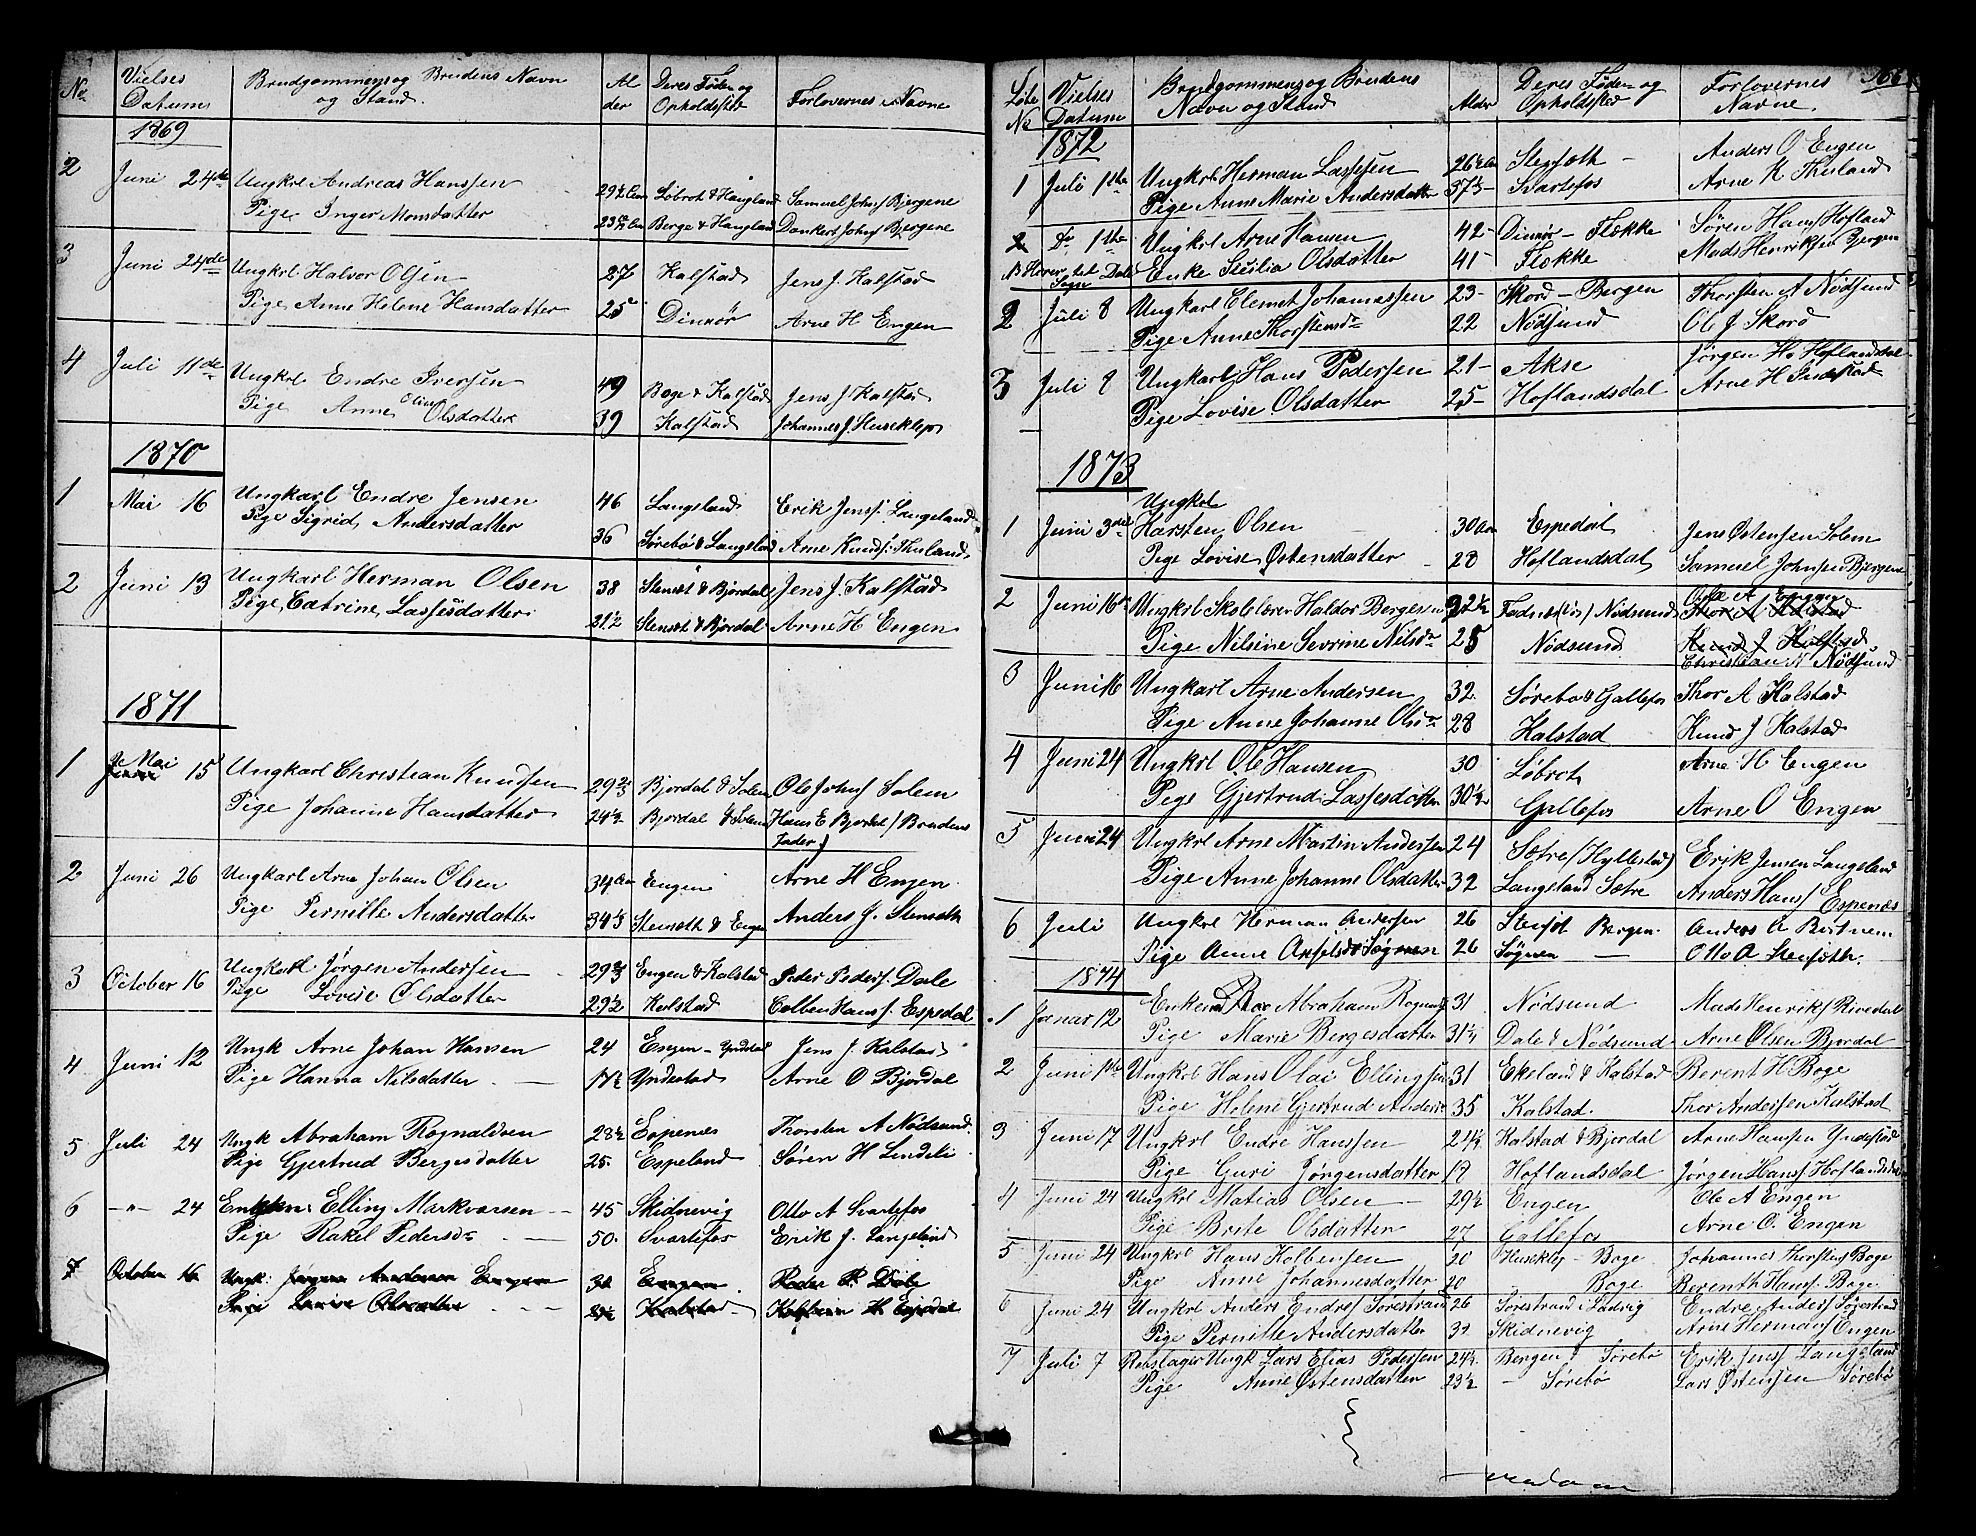 No
Vielses Datum
Brudgommens og Brudens Navn og Stand.
Alder
Deres Føde- og Opholdssted
Forlovernes Navne
1869
2 Juni 24de Ungkrl Andreas Hanssen 29½ Aar Løbrot & Haugland Samuel Johns Bjergene
Pige Inger Monsdatter Berge & Haugland Dankert Johns Bjergene
3 Juni 24de Ungkrl Halvor Olsen 27 Kalstad Jens J. Kalstad
Pige Anne Helene Hansdatter 25 Dinnør Arne H Engen
4 Juli 11de Ungkrl Endre Iversen 49 Boge & Kalstad Jens J Kalstad
Pige Anne Eline Olsdatter 39 Kalstad Johannes J. Huseklep
1870
1 Mai 16 Ungkarl Endre Jensen 46 Langeland Erik Jens. Langeland
Pige Sigrid Andersdatter 36 Sørebø & Langeland Arne Knuds. Thuland
2 Juni 13 Ungkarl Herman Olsen 38 Stensæt & Bjordal Jens J. Kalstad
Pige, Catrine, Lassesdatter 21½ Stensæt & Bjordal Arne H Engen
1871
1 Mai 15 Ungkarl Christian Knudsen 29 Bjordal & Solem Ole Johns Solem
Pige Johanne Hansdatter 24½ Bjordal & Solem Hans E Bjordal / Brudens
Fader)
2 Juni 26 Ungkarl Arne Johan Olsen 34 Aar Engen Arne H Engen
Pige Pernille Andersdatter 34 Stensæth & Engen Anders J. Stensæth
3 October 16 Ungkarl Jørgen Andersen 29 Engen & Kalstad Peder Peders. Dale
Pige Lovise Olsdatter 29½ Kalstad Colben Hans. Espedal
4 Juni 12 Ungk Arne Johan Hansen 24 Engen - Ynddal Jens J. Kalstad
Pige Hanna Nilsdatter. 17½ Yndestad Arne O Bjordal
5 Juli 24 Ungk Abraham Rognaldsen 28½ Espenæs Thorsten A Nødsund.
Pige Gjertrud Bergesdatter 25. Espeland Søren H Lindeli
6 -"- 24 Enkem: Elling Markvarsen 45 Skidnevig Otto A Svartefos
Pige Rakel Pedersdr 50. Svartefos Erik J. Langeland
7 October 16 Ungk: Jørgen Andersen Engen Engen Peder P. Dale
Pige Lovise Olsdatter Kalstad Kolbein H. Espedal
366
Løbe No
Vielses Datum
Brudgommens og Brudens Navn og Stand
Alder
Deres Føde- og Opholdssted
Forlovernes Navne.
1872
1 Juli 1ste Ungkrl. Herman Lassesen 26½ Aar Stensæth - Anders O Engen
Pige Anne Marie Andersdatter 37½ - Svartefos Arne K Thuland
2 Do 1ste Ungkrl Arne Hansen 42 - Dinnør - Flekke Søren Hans. Hofland
Enke Sicilia Olsdatter 41 - Flekke Mads Henriksen Bjergen
2 Juli 8 Ungkarl Clemet Johannessen 23 - Skord - Bergen Thorsten A Nødsund
Pige Anne Thorstensdr 22 Nødsund Ole J Skord
3 Juli 8 Ungkarl Hans Pedersen 21 - Akse Jørgen H. Hoflandsdal
Pige Lovise Olsdatter 25 - Hoflandsdal Arne H Yndestad
1873
Ungkrl
1 Juni 3die Karsten Olsen 30 Aar Espedal Jens Østensen Solem
Pige Lovise Østensdatter 28 Hoflandsdal Samuel Johnsen Bjergene
2 Juni 16de Ungkrl Skolelærer Haldor Bergesen 22½ Nødsund Thor A Kalstad
Pige Nilsine Severine Nilsdr 25 Nødsund Knud J Kalstad
Christian N Nødsund
3 Juni 16 Ungkarl Arne Andersen 32. Sørebø & Gallefos Thor A Kalstad
Pige Anne Johanne Olsdr 28 Kalstad Knud J Kalstad
4 Juni 24 Ungkrl Ole Hansen 30 Løbrot Arne H Engen
Pige Gjertrud Lassesdatter 30½ Gallefos Arne O Engen
5 Juni 24 Ungkrl Arne Martin Andersen 24 Sætre / Hyllestad) Erik Jensen Langeland
Pige Anne Johanne Olsdatter 32 Langeland Sætre Anders Hans. Espenæs
6 Juli Ungkrl Herman Andersen 26 Stensæt Bergen. Anders A Birtnem
Pige Anne 26 Søgnen - Otto A Stensæth.
1874
1 Januar 12 Enkem Abraham Rognalds 31 Nødsund Mads Henriks Rivedal
Pige Marie Bergesdatter 31½ Dale & Nødsund Arne Olsen Bjordal
2 Juni 1ste Ungkrl Hans Olai Ellingsen 31 Ekeland & Kalstad Berent H. Boge
Pige Helene Gjertrud Andersdr 35 Kalstad. Thor Andersen Kalstad
3 Juni 17 Ungkrl Endre Hanssen 24½ Kalstad & Bjordal Arne Hansen Yndestad
Pige Guri Jørgensdatter 17 Hoflandsdal Jørgen Hans. Hoflandsdal
4 Juni 24 Ungkrl Matias Olsen 29½ Engen Ole A Engen
Pige Brite Olsdatter 27 Gallefos Arne O. Engen
5 Juni 24 Ungkrl Hans Kolbensen 20 Huseklep - Boge Johannes Thorstens Boge
Pige Anne Johannesdatter 20 Boge Berenth Hans. Boge
6 Juni 24 Ungkrl Anders Endres Sørestrand 26 Sørestrand i Ladvig Endre Anders Sørestrand
Pige Pernille Andersdatter 32 Skidnevig Arne Hermans Engen
7 Juli 7 Rebslager Ungk Lars Elias Pedersen 24½ Bergen & Sørebø Erik Jens. Langeland
Pige Anne Østensdatter 23½ - Sørebø Lars Østensen Sørebø